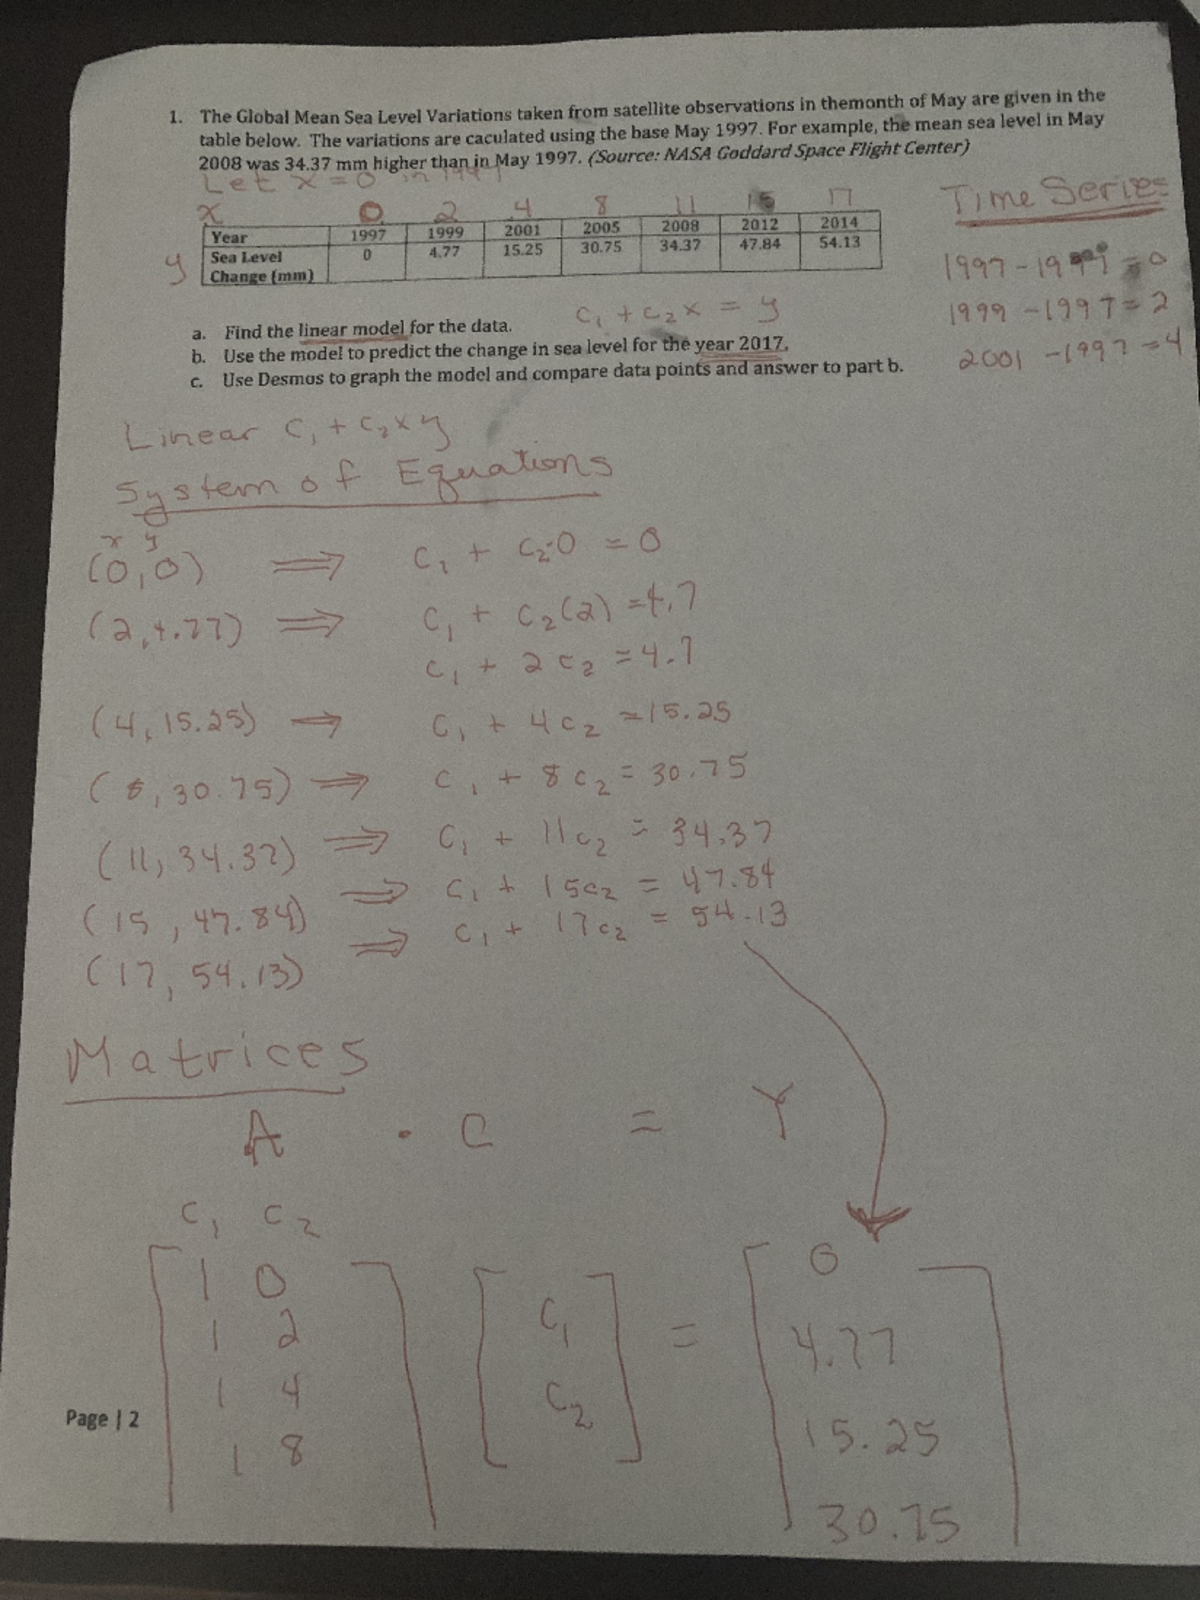 1. The Global Mean Sea Level Variations taken from satellite observations in themonth of May are given in the
table below. The variations are caculated using the base May 1997. For example, the mean sea level in May
2008 was 34.37 mm higher than in May 1997. (Source: NASA Goddard Space Flight Center)
Let x = 0 in 1997
Time Series
x 0 2 4 8 11 15 17
Year 1997 1999 2001 2005 2008 2012 2014
y Sea Level Change (mm) 0 4.77 15.25 30.75 34.37 47.84 54.13
1997 - 1997 = 0
1999 - 1997 = 2
2001 - 1997 = 4
c₁ + c₂x = y
a. Find the linear model for the data.
b. Use the model to predict the change in sea level for the year 2017.
c. Use Desmos to graph the model and compare data points and answer to part b.
Linear c₁ + c₂x y
System of Equations
x y
(0,0) ⇒ c₁ + c₂·0 = 0
(2,4.77) ⇒ c₁ + c₂(2) = 4.7
c₁ + 2c₂ = 4.7
(4,15.25) ⇒ c₁ + 4c₂ = 15.25
(8,30.75) ⇒ c₁ + 8c₂ = 30.75
(11,34.37) ⇒ c₁ + 11c₂ = 34.37
(15,47.84) ⇒ c₁ + 15c₂ = 47.84
(17,54.13) ⇒ c₁ + 17c₂ = 54.13
Matrices
A · C = Y
c₁ c₂
1 0 0
1 2 c₁ = 4.77
1 4 c₂ 15.25
1 8 30.75
Page | 2